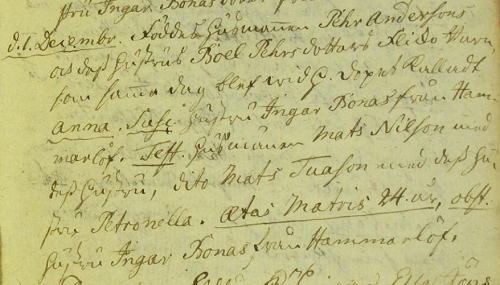 stru Ingar Bonas
d. 1. Decembr. föddes Husmannen Pehr Andersons
och dess Hustrus Boel Pehrs dotters flicko barn
som samma dag blef wid H. dopet kalladt
Anna. Susc. Hustru Ingar Bonas från Ham-
marlöf. Test. Husmannen Mats Nilson med
dess Hustru, dito Mats Tuason med dess Hu-
stru Petronella. Ætas Matris 24. år, obst.
Hustru Ingar Bonas från Hammarlöf.